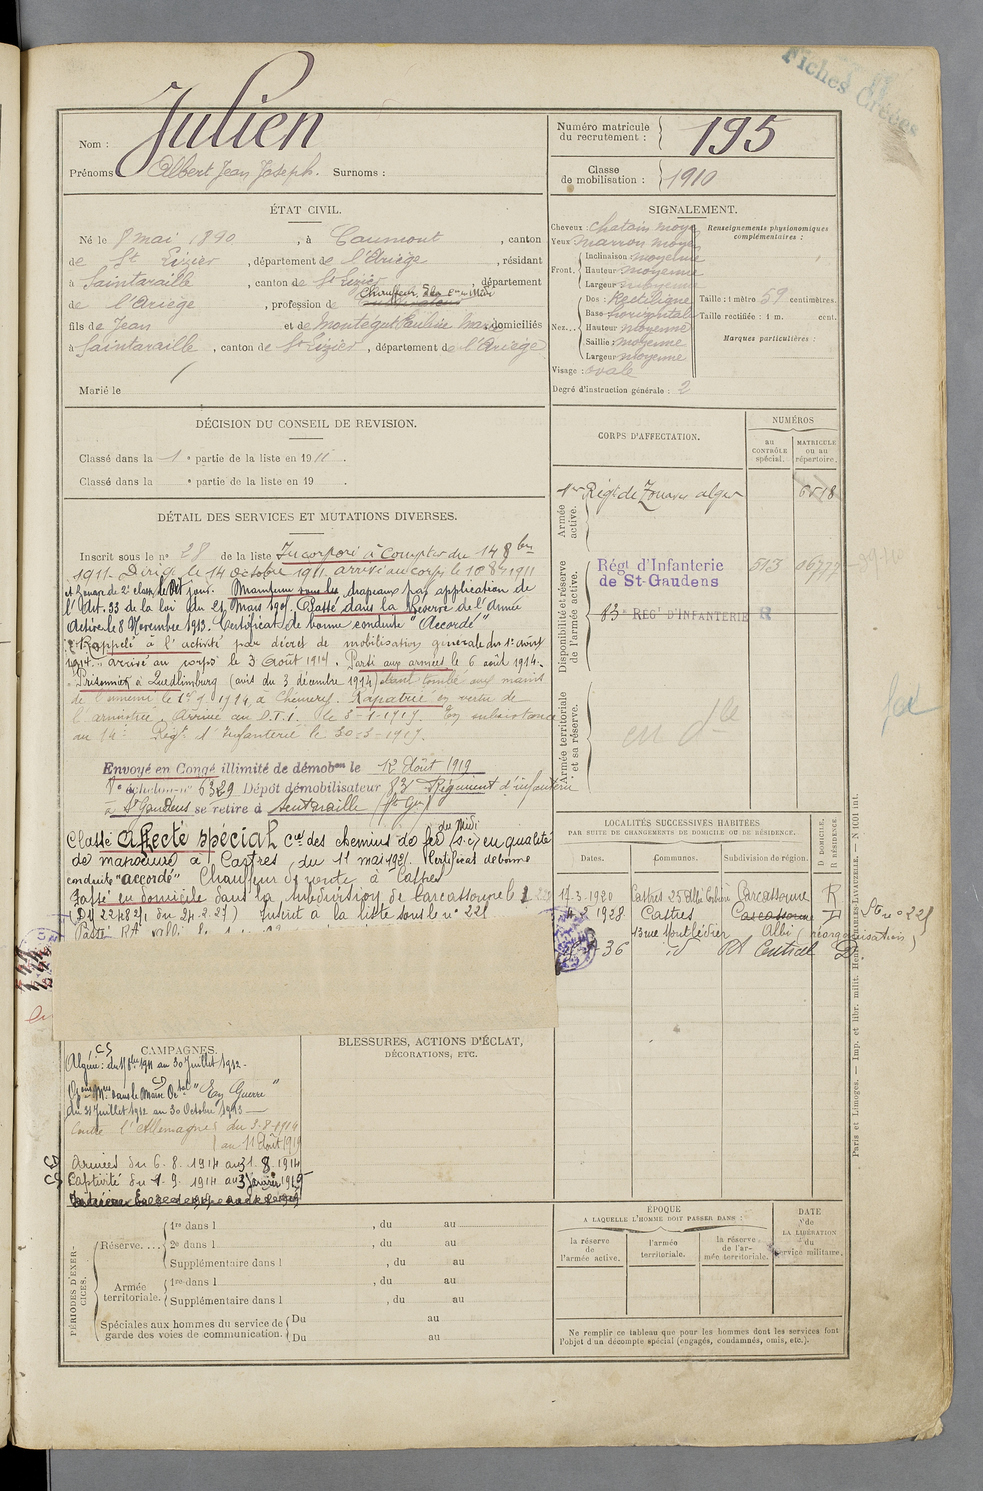 Fiches Créées
Nom : Julien
Prénoms Albert Jean Joseph. Surnoms :
Numéro matricule du recrutement : 195
Classe de mobilisation : 1910
ÉTAT CIVIL.
Né le 8 mai 1890, à Caumont, canton
de St Lizier, département de l'Ariège, résidant
à Saintaraille, canton de St Lizier, département
de l'Ariège, profession de Chauffeur
fils de Jean et de Montégut Pauline domiciliés
à Saintaraille, canton de St Lizier, département de l'Ariège
Marié le
SIGNALEMENT.
Cheveux : chatain moyen
Yeux marron moyen
Front. Inclinaison moyenne
Hauteur moyenne
Largeur moyenne
Nez... Dos : Rectiligne
Base horizontale
Hauteur moyenne
Saillie : moyenne
Largeur moyenne
Visage : ovale
Degré d'instruction générale : 2
Renseignements physionomiques complémentaires :
Taille : 1 mètre 59 centimètres.
Taille rectifiée : 1 m. cent.
Marques particulières :
DÉCISION DU CONSEIL DE REVISION.
Classé dans la 1e partie de la liste en 1911.
Classé dans la e partie de la liste en 19 .
DÉTAIL DES SERVICES ET MUTATIONS DIVERSES.
Inscrit sous le no 28 de la liste Incorporé à compter du 14 8bre
1911. Dirigé le 14 octobre 1911 arrivé au corps le 1911
et Zouave de 2e classe le dit jour. Maintenu sous les drapeaux par application de
l'Art. 33 de la loi du 21 Mars 1905. Passé dans la Réserve de l'Armée
Active le 8 Novembre 1913. Certificat de bonne conduite "Accordé"
Rappelé à l'activité par décret de mobilisation générale du 1er août
1914. arrivé au corps le 3 Août 1914. Parti aux armées le 6 août 1914.
Prisonnier à Quedlimburg (avis du 3 décembre 1914) étant tombé aux mains
de l'ennemi le 1914, à Chémery. Rapatrié en vertu de
l'armistice. Arrivé au D.T.I. le 3-1-1919. En subsistance
au 14e Regt d'Infanterie le 30-3-1919.
Envoyé en Congé illimité de démobon le 12 Août 1919
échelon no 6329 Dépôt démobilisateur 83e Régiment d'infanterie
à St Gaudens se retire à Sentaraille (Hte Gar)
Classé affecté spécial Cie des chemins de fer du Midi (s.c) en qualité
de manœuvre à Castres, du 11 mai 1921. Certificat de bonne
conduite "accordé" Chauffeur de route à Castres
Passé en domicile dans la subdivision de Carcassonne le
Inscrit à la liste sous le no 221
CORPS D'AFFECTATION.
NUMÉROS
au CONTRÔLE spécial.
MATRICULE ou au répertoire.
Armée active.
1er Régt de Zouaves alger 6518
Disponibilité et réserve de l'armée active.
Régt d'Infanterie de St-Gaudens 513
83e REGt D'INFANTERIE R
Armée territoriale et sa réserve.
LOCALITÉS SUCCESSIVES HABITÉES
PAR SUITE DE CHANGEMENTS DE DOMICILE OU DE RÉSIDENCE.
Dates. Communes. Subdivision de région. D DOMICILE. R RÉSIDENCE.
17.3.1920 Castres Carcassonne R
1928 Castres Carcassonne D Ste no 221
Albi (réorganisation)
36 id RA Central D.
CAMPAGNES.
Algérie : du 1911 au 30 Juillet 1912.
"En Guerre"
du 31 Juillet 1912 au 30 Octobre 1913
Contre l'Allemagne du 3-8-1914
au 11 Août 1919
Armées du 6.8.1914 au 31.8.1914
Captivité du 1.9.1914 au 3 Janvier 1919
BLESSURES, ACTIONS D'ÉCLAT, DÉCORATIONS, ETC.
PÉRIODES D'EXERCICES.
Réserve....
1re dans l , du au
2e dans l , du au
Supplémentaire dans l , du au
Armée territoriale.
1re dans l , du au
Supplémentaire dans l , du au
Spéciales aux hommes du service de garde des voies de communication.
Du au
Du au
ÉPOQUE
A LAQUELLE L'HOMME DOIT PASSER DANS :
la réserve de l'armée active.
l'armée territoriale.
la réserve de l'armée territoriale.
DATE de LA LIBÉRATION du service militaire.
Ne remplir ce tableau que pour les hommes dont les services font
l'objet d'un décompte spécial (engagés, condamnés, omis, etc.).
Paris et Limoges. — Imp. et libr. milit. Henri CHARLES-LAVAUZELLE. — N 1001 int.